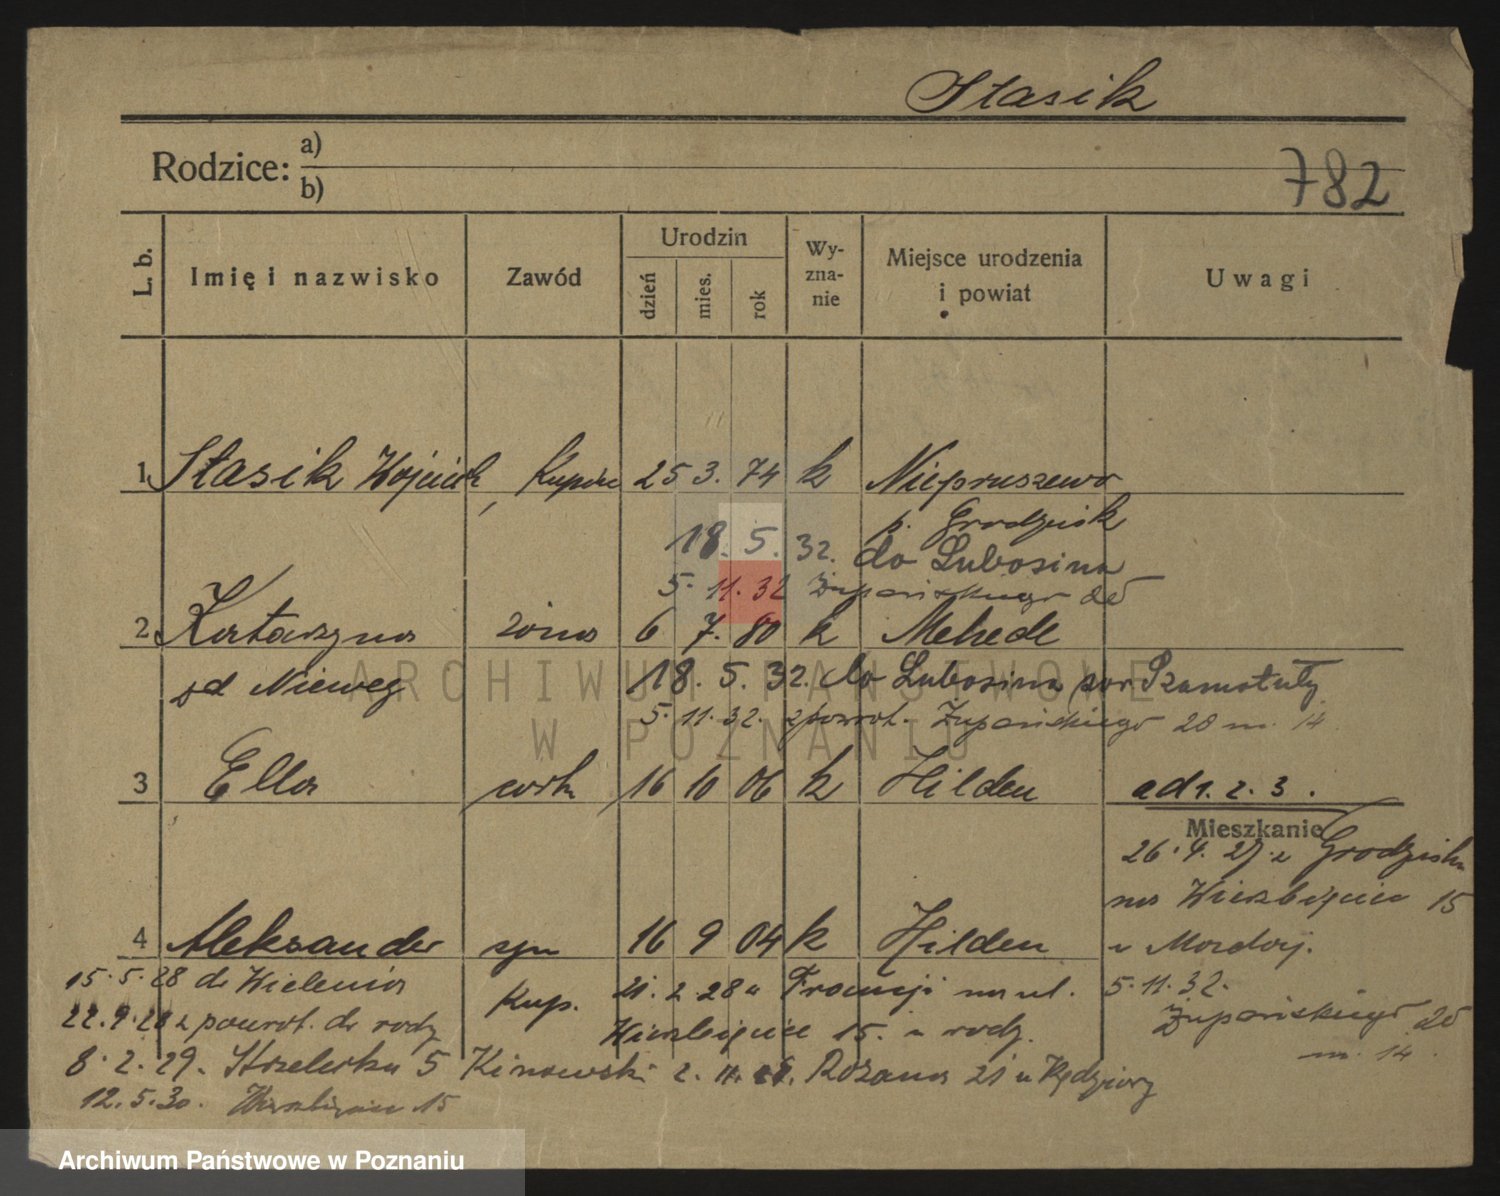 Stasik
Rodzice: a)
b)
782
L. b.
Imię i nazwisko
Zawód
Urodzin
dzień
mies.
rok
Wy-
zna-
nie
Miejsce urodzenia
i powiat
Uwagi
1 Stasik Wojciech, Kupiec 25 3. 74 k Niepruszewo
p. Grodzisk
18. 5. 32. do Lubosina
5. 11. 32 Żupańskiego
2 Katarzyna żona 6 7. 80 k
zd Nieweg 18. 5. 32. do Lubosina pow Szamotuły
5. 11. 32. z powrot. Żupańskiego 20 m. 14
3 Ella córk 16 10 06 k Hilden ad 1. 2. 3.
Mieszkanie
26. 4. 27. z Grodziska
na Wierzbięcice 15
u
4 Aleksander syn 16 9 04 k Hilden
15. 5. 28 do Wielenia Kup. 21. 2. 28 z Francji na ul. 5. 11. 32.
22. 9. 28 z powrot. do rodz Wierzbięcice 15. u rodz. Żupańskiego 20
m. 14.
8. 2. 29. Strzelecka 5 Różana 21 u
12. 5. 30. Wierzbięcice 15
ARCHIWUM PAŃSTWOWE
W POZNANIU
Archiwum Państwowe w Poznaniu